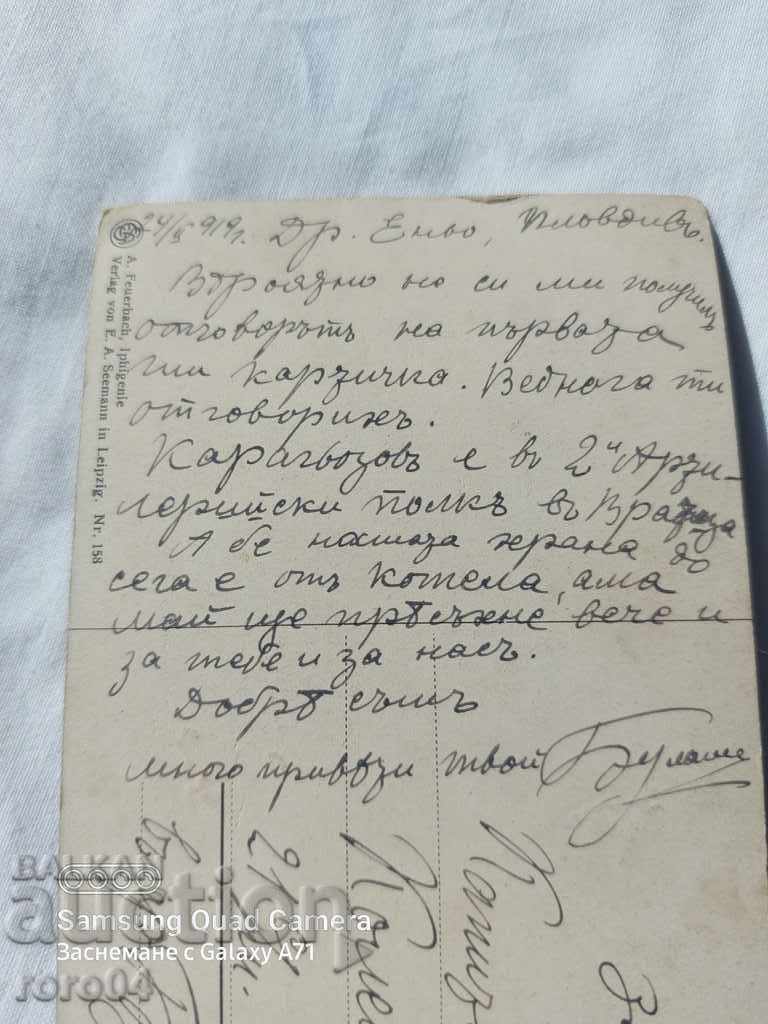 24/X 919 г. Др. Еньо, Пловдивъ.
Вѣроязно но си ми получилъ
отговорътъ на първаза
ми карзичка. Веднога ти
отговорихъ.
Карагьозовъ е въ 2й Арзи-
лерийски полкъ въ Враца
А бе нашаза храна до
сега е отъ котела, ама
май ще прѣсъхне вече и
за тебе и за насъ.
Добрѣ съмъ
много привѣзи твой
A. Feuerbach, Iphigenie
Verlag von E. A. Seemann in Leipzig. Nr. 158
BALKAN
auction
roro04
Samsung Quad Camera
Заснемане с Galaxy A71